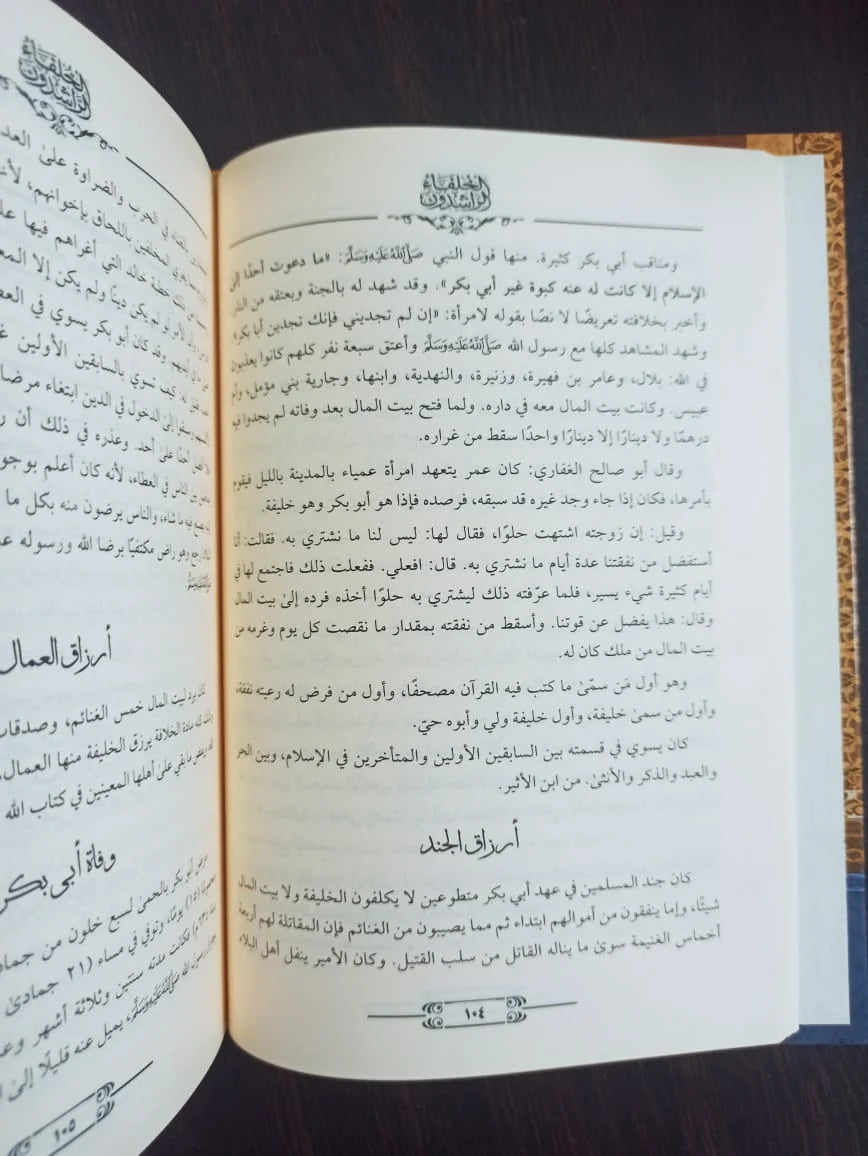 الخلفاء الراشدون
ومناقب أبي بكر كثيرة. منها قول النبي ﷺ: «ما دعوت أحدًا إلى
الإسلام إلا كانت له عنه كبوة غير أبي بكر». وقد شهد له بالجنة وبعتقه من النار
وأخبر بخلافته تعريضًا لا نصًا بقوله لامرأة: «إن لم تجديني فإنك تجدين أبا بكر».
وشهد المشاهد كلها مع رسول الله ﷺ وأعتق سبعة نفر كلهم كانوا يعذبون
في الله: بلال، وعامر بن فهيرة، وزنيرة، والنهدية، وابنها، وجارية بني مؤمل، وأم
عبيس. وكانت بيت المال معه في داره. ولما فتح بيت المال بعد وفاته لم يجدوا فيه
درهمًا ولا دينارًا إلا دينارًا واحدًا سقط من غراره.
وقال أبو صالح الغفاري: كان عمر يتعهد امرأة عمياء بالمدينة بالليل فيقوم
بأمرها، فكان إذا جاء وجد غيره قد سبقه، فرصده فإذا هو أبو بكر وهو خليفة.
وقيل: إن زوجته اشتهت حلوًا، فقال لها: ليس لنا ما نشتري به. فقالت: أنا
أستفضل من نفقتنا عدة أيام ما نشتري به. قال: افعلي. ففعلت ذلك فاجتمع لها في
أيام كثيرة شيء يسير، فلما عرّفته ذلك ليشتري به حلوًا أخذه فرده إلىٰ بيت المال
وقال: هذا يفضل عن قوتنا. وأسقط من نفقته بمقدار ما نقصت كل يوم وغرمه من
بيت المال من ملك كان له.
وهو أول مَن سمّىٰ ما كتب فيه القرآن مصحفًا، وأول من فرض له رعيته نفقة،
وأول من سمىٰ خليفة، وأول خليفة ولي وأبوه حيّ.
كان يسوي في قسمته بين السابقين الأولين والمتأخرين في الإسلام، وبين الحر
والعبد والذكر والأنثىٰ. من ابن الأثير.
أرزاق الجند
كان جند المسلمين في عهد أبي بكر متطوعين لا يكلفون الخليفة ولا بيت المال
شيئًا، وإما ينفقون من أموالهم ابتداء ثم مما يصيبون من الغنائم فإن المقاتلة لهم أربعة
أخماس الغنيمة سوىٰ ما يناله القاتل من سلب القتيل. وكان الأمير ينفل أهل البلاء
١٠٤
الخلفاء الراشدون
في الحرب والضراوة علىٰ العد
المخلفين باللحاق بإخوانهم، لأخ
خطبة خالد التي أغراهم فيها عل
لو لم يكن دينًا ولم يكن إلا المع
وقد كان أبو بكر يسوي في العط
كيف تسوي بالسابقين الأولين
إلىٰ الدخول في الدين ابتغاء مرضا
علىٰ أحد. وعذره في ذلك أن ر
الناس في العطاء، لأنه كان أعلم بوجو
ما شاء، والناس يرضون منه بكل ما
وهو راض مكتفيًا برضا الله ورسوله ع
ﷺ
أرزاق العمال
كان يرد لبيت المال خمس الغنائم، وصدقات
الخلافة يرزق الخليفة منها العمال،
ما بقي علىٰ أهلها المعينين في كتاب الله
وفاة أبي بكر
مرض أبو بكر بالحمى لسبع خلون من جماد
(١٥) يومًا، وتوفي في مساء (٢١ جمادىٰ
فكانت مدته سنتين وثلاثة أشهر وع
رسول الله ﷺ، يميل عنه قليلًا إلىٰ
١٠٥